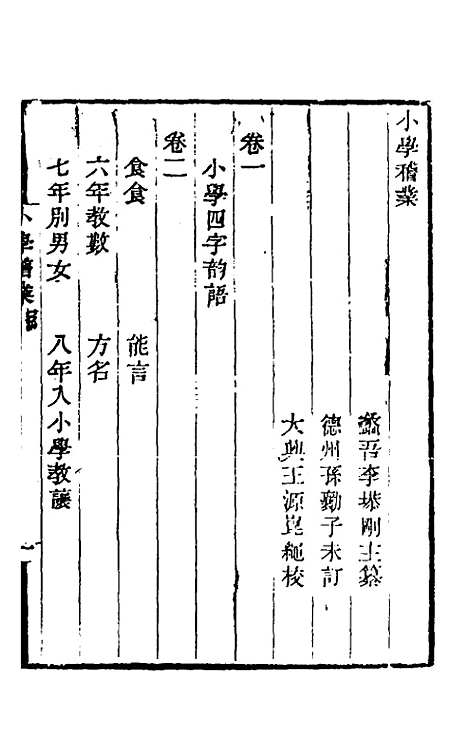 小學稽業
蠡吾李塨剛主纂
德州孫勷子未訂
大興王源崑繩校
卷一
小學四字韵語
卷二
食食 能言
六年教數 方名
七年別男女 八年入小學教讓
小學稽業
一